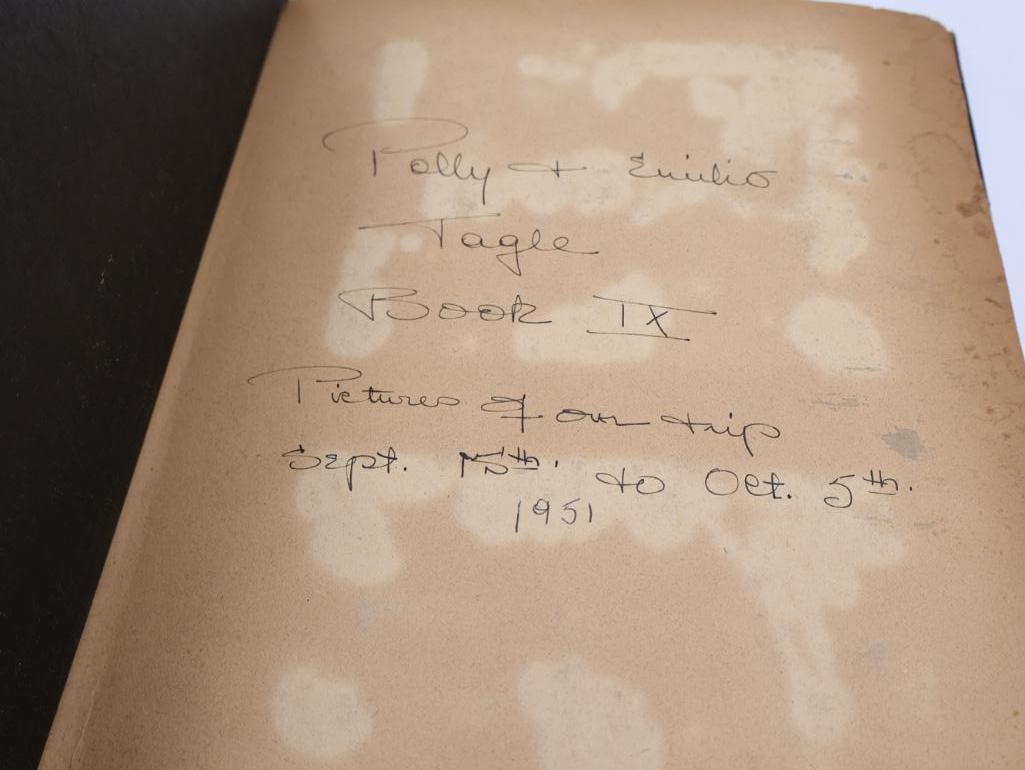 Polly + Emilio
Tagle
Book IX
Pictures of our trip
Sept. 15th. to Oct. 5th.
1951